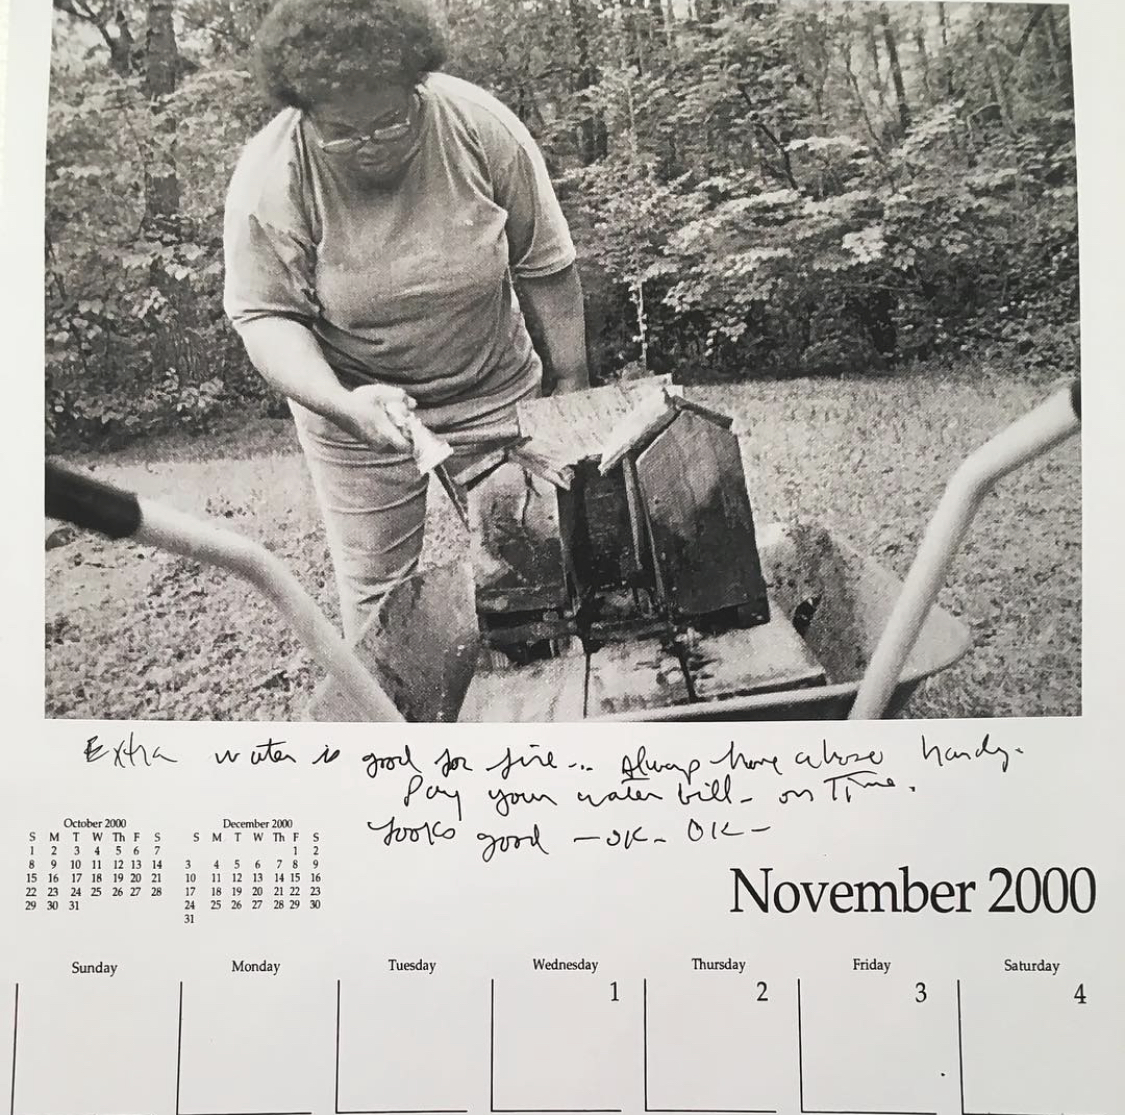 Extra water is good for fire... Always have a hose handy.
Pay your water bill - on Time.
Looks good - OK - OK -
October 2000
S M T W Th F S
1 2 3 4 5 6 7
8 9 10 11 12 13 14
15 16 17 18 19 20 21
22 23 24 25 26 27 28
29 30 31
December 2000
S M T W Th F S
1 2
3 4 5 6 7 8 9
10 11 12 13 14 15 16
17 18 19 20 21 22 23
24 25 26 27 28 29 30
31
November 2000
Sunday Monday Tuesday Wednesday Thursday Friday Saturday
1 2 3 4